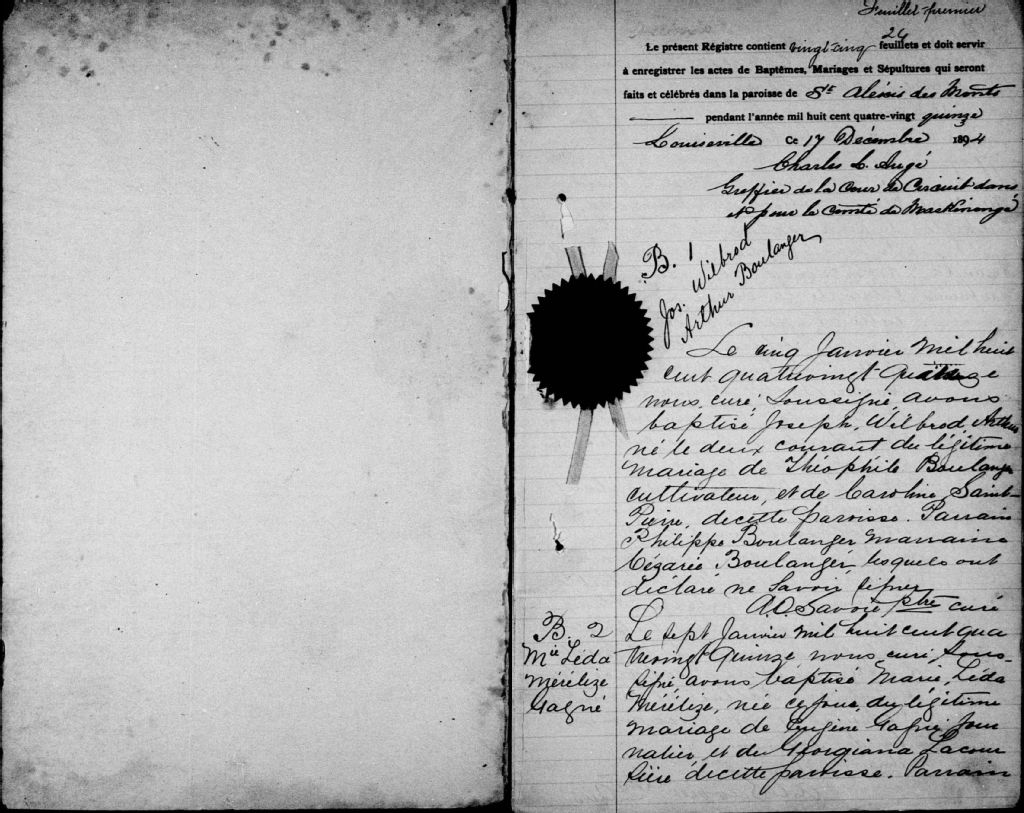 Feuillet premier
26
Le présent Régistre contient vingt cinq feuillets et doit servir
à enregistrer les actes de Baptêmes, Mariages et Sépultures qui seront
faits et célébrés dans la paroisse de St Alexis des Monts
pendant l'année mil huit cent quatre-vingt quinze
Louiseville Ce 17 Décembre 1894
Charles L. Augé
Greffier de la Cour de Circuit dans
et pour le Comté de Maskinongé
B. 1
Jos. Wilbrod
Arthur Boulanger
Le cinq Janvier mil huit
cent quatrevingt
nous, curé, soussigné, avons
baptisé Joseph, Wilbrod, Arthur
né le deux courant du légitime
mariage de Théophile Boulanger
cultivateur, et de Caroline Saint-
Pierre, de cette paroisse. Parrain
Philippe Boulanger marraine
Cézarée Boulanger, lesquels ont
déclaré ne savoir signer
A.O. Savoie ptre curé
B. 2
Mie Léda
Mérélize
Gagné
Le sept Janvier mil huit cent qua
trevingt quinze, nous, curé, sous-
signé, avons baptisé Marie, Léda
Mérélize, née ce jour, du légitime
mariage de Eugène Gagné jour
nalier, et de Georgiana Lacour
sière de cette paroisse. Parrain